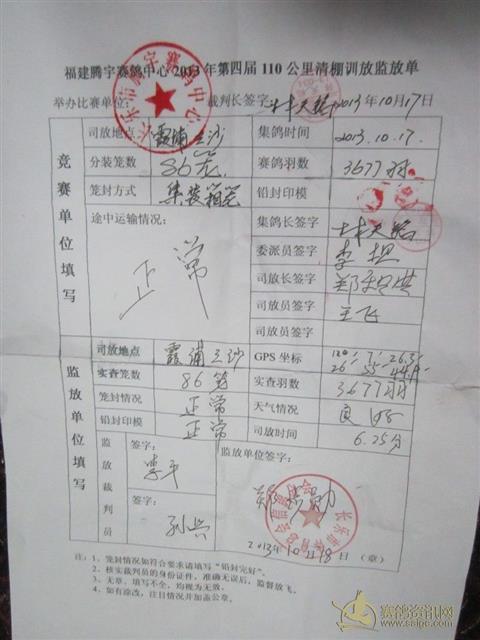 福建腾宇赛鸽中心2013年第四届110公里清棚训放监放单
举办比赛单位: 裁判长签字: 2013年10月17日
长乐市腾宇赛鸽中心
竞赛单位填写
司放地点 霞浦三沙 集鸽时间 2013.10.17.
分装笼数 86笼 赛鸽羽数 3677羽
笼封方式 集装箱 铅封印模
途中运输情况: 正常
集鸽长签字
委派员签字 李坦
司放长签字
司放员签字 王飞
司放员签字
监放单位填写
司放地点 霞浦三沙 GPS坐标
实查笼数 86笼 实查羽数 3677羽
笼封情况 正常 天气情况 良好
铅封印模 正常 司放时间 6.25分
监放裁判员
签字: 李平
签字: 孙兴
监放单位签字:
2013年10月18日 (章)
注: 1、笼封情况如符合要求请填写“铅封完好”。
2、核实裁判员的身份证件,准确无误后,监督放飞。
3、无章、填写不全,均视为无效。
4、如有涂改,注日情况并加盖公章。
赛鸽资讯网
www.saige.com